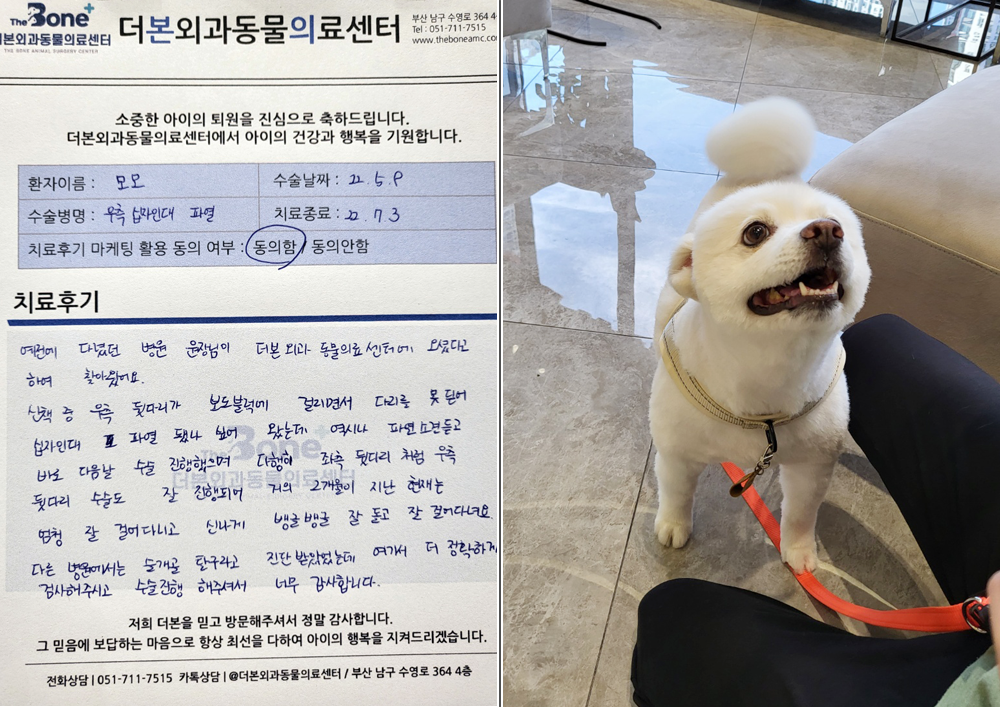 The Bone+
더본외과동물의료센터
THE BONE ANIMAL SURGERY CENTER
더본외과동물의료센터
부산 남구 수영로 364 4
Tel : 051-711-7515
www.theboneamc.co
소중한 아이의 퇴원을 진심으로 축하드립니다.
더본외과동물의료센터에서 아이의 건강과 행복을 기원합니다.
환자이름 : 모모
수술날짜 : 22.5.9
수술병명 : 우측 십자인대 파열
치료종료 : 22.7.3
치료후기 마케팅 활용 동의 여부 : 동의함 / 동의안함
치료후기
예전에 다녔던 병원 원장님이 더본 외과 동물의료센터에 오셨다고
하여 찾아왔어요.
산책 중 우측 뒷다리가 보도블럭에 걸리면서 다리를 못 딛어
십자인대 파열 됐나 싶어 왔는데 역시나 파열소견듣고
바로 다음날 수술 진행했으며 다행히 좌측 뒷다리 처럼 우측
뒷다리 수술도 잘 진행되어 거의 2개월이 지난 현재는
엄청 잘 걸어다니고 신나게 뱅글뱅글 잘 돌고 잘 걸어다녀요.
다른 병원에서는 슬개골 탈구라고 진단 받았었는데 여기서 더 정확하게
검사해주시고 수술진행 해주셔서 너무 감사합니다.
The Bone+
더본외과동물의료센터
저희 더본을 믿고 방문해주셔서 정말 감사합니다.
그 믿음에 보답하는 마음으로 항상 최선을 다하여 아이의 행복을 지켜드리겠습니다.
전화상담 | 051-711-7515 카톡상담 | @더본외과동물의료센터 / 부산 남구 수영로 364 4층